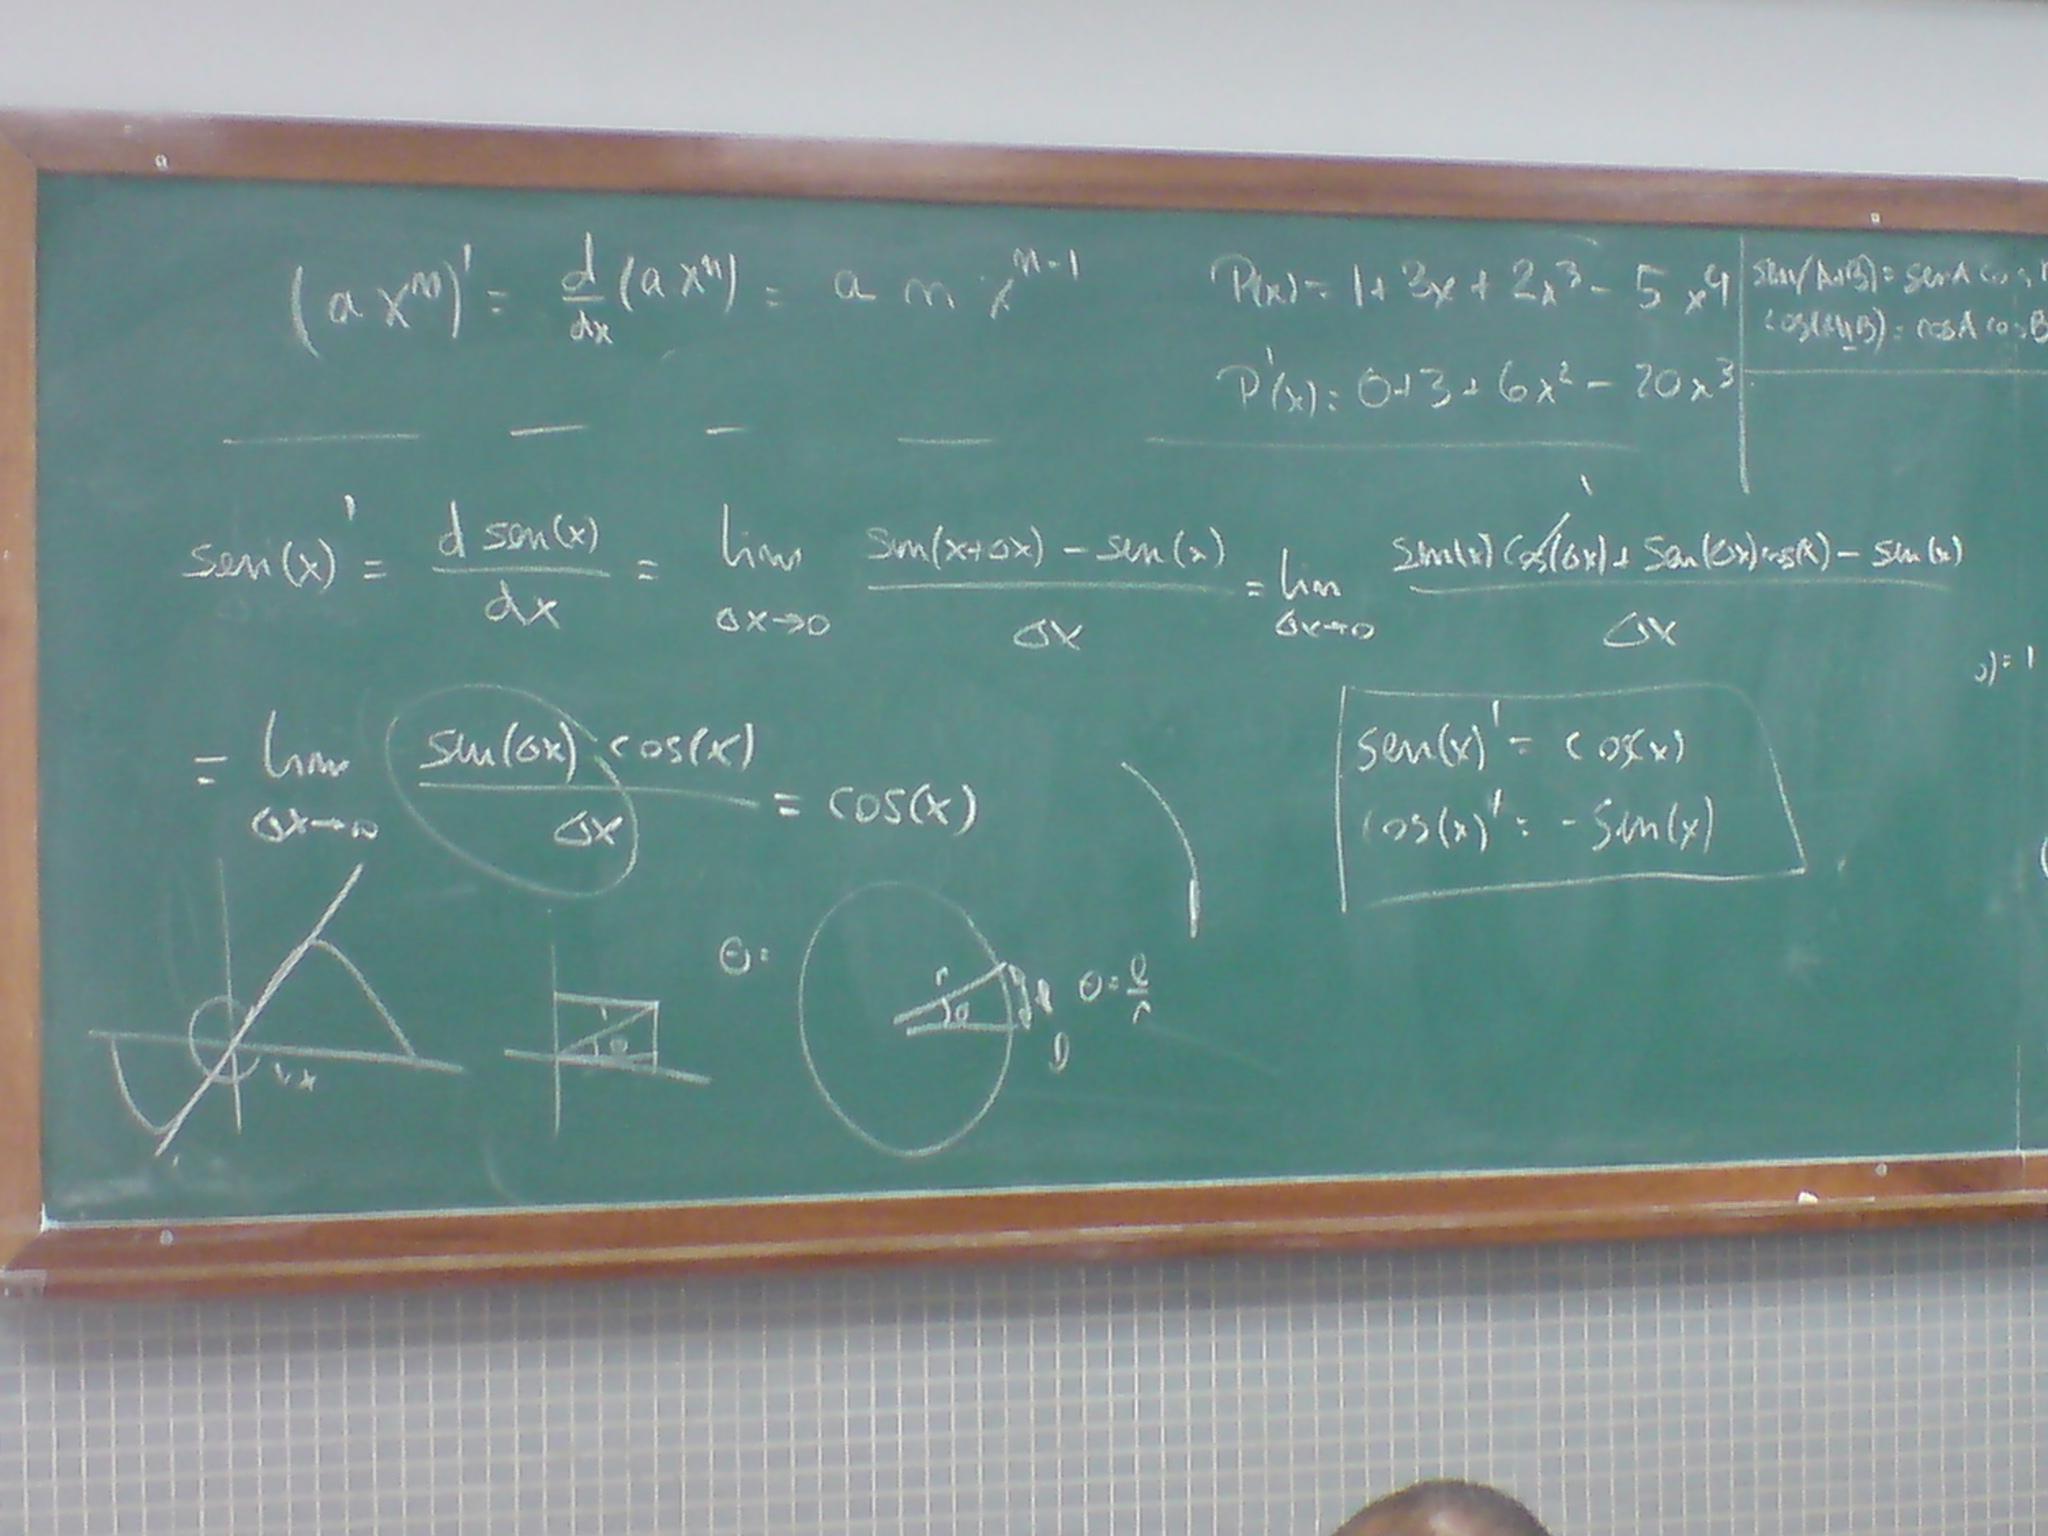 (a xⁿ)' = d/dx (a xⁿ) = a n x^(n-1)
P(x) = 1 + 3x + 2x³ - 5x⁴
P'(x) = 0 + 3 + 6x² - 20x³
sen(A+B) = senA cos
cos(A+B) = cosA cosB
sen(x)' = d sen(x)/dx = lim Δx→0 (sen(x+Δx) - sen(x))/Δx = lim Δx→0 (sen(x) cos(Δx) + sen(Δx) cos(x) - sen(x))/Δx
1
)= 1
= lim Δx→0 sen(Δx) · cos(x)/Δx = cos(x)
sen(x)' = cos(x)
cos(x)' = -sen(x)
θ =
r θ l
θ = l/r
1 θ